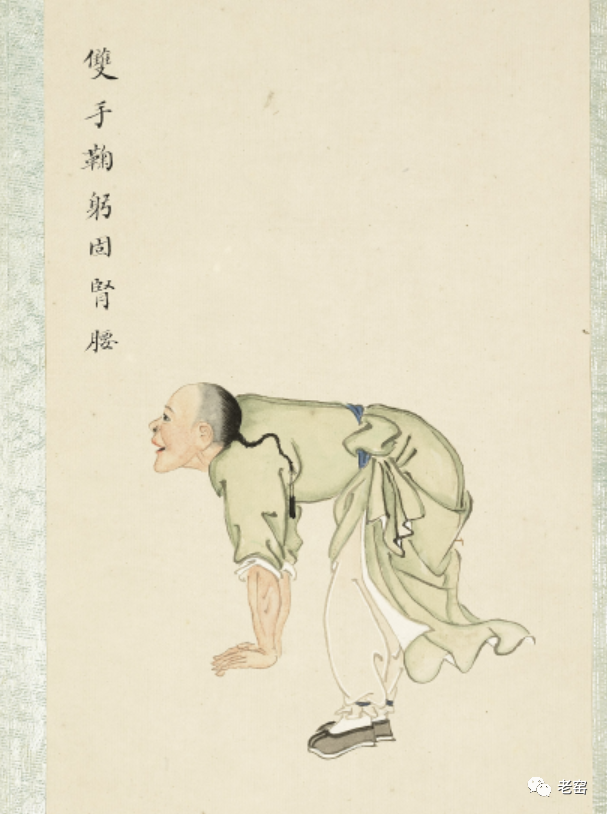 雙手鞠躬固腎腰
老窑